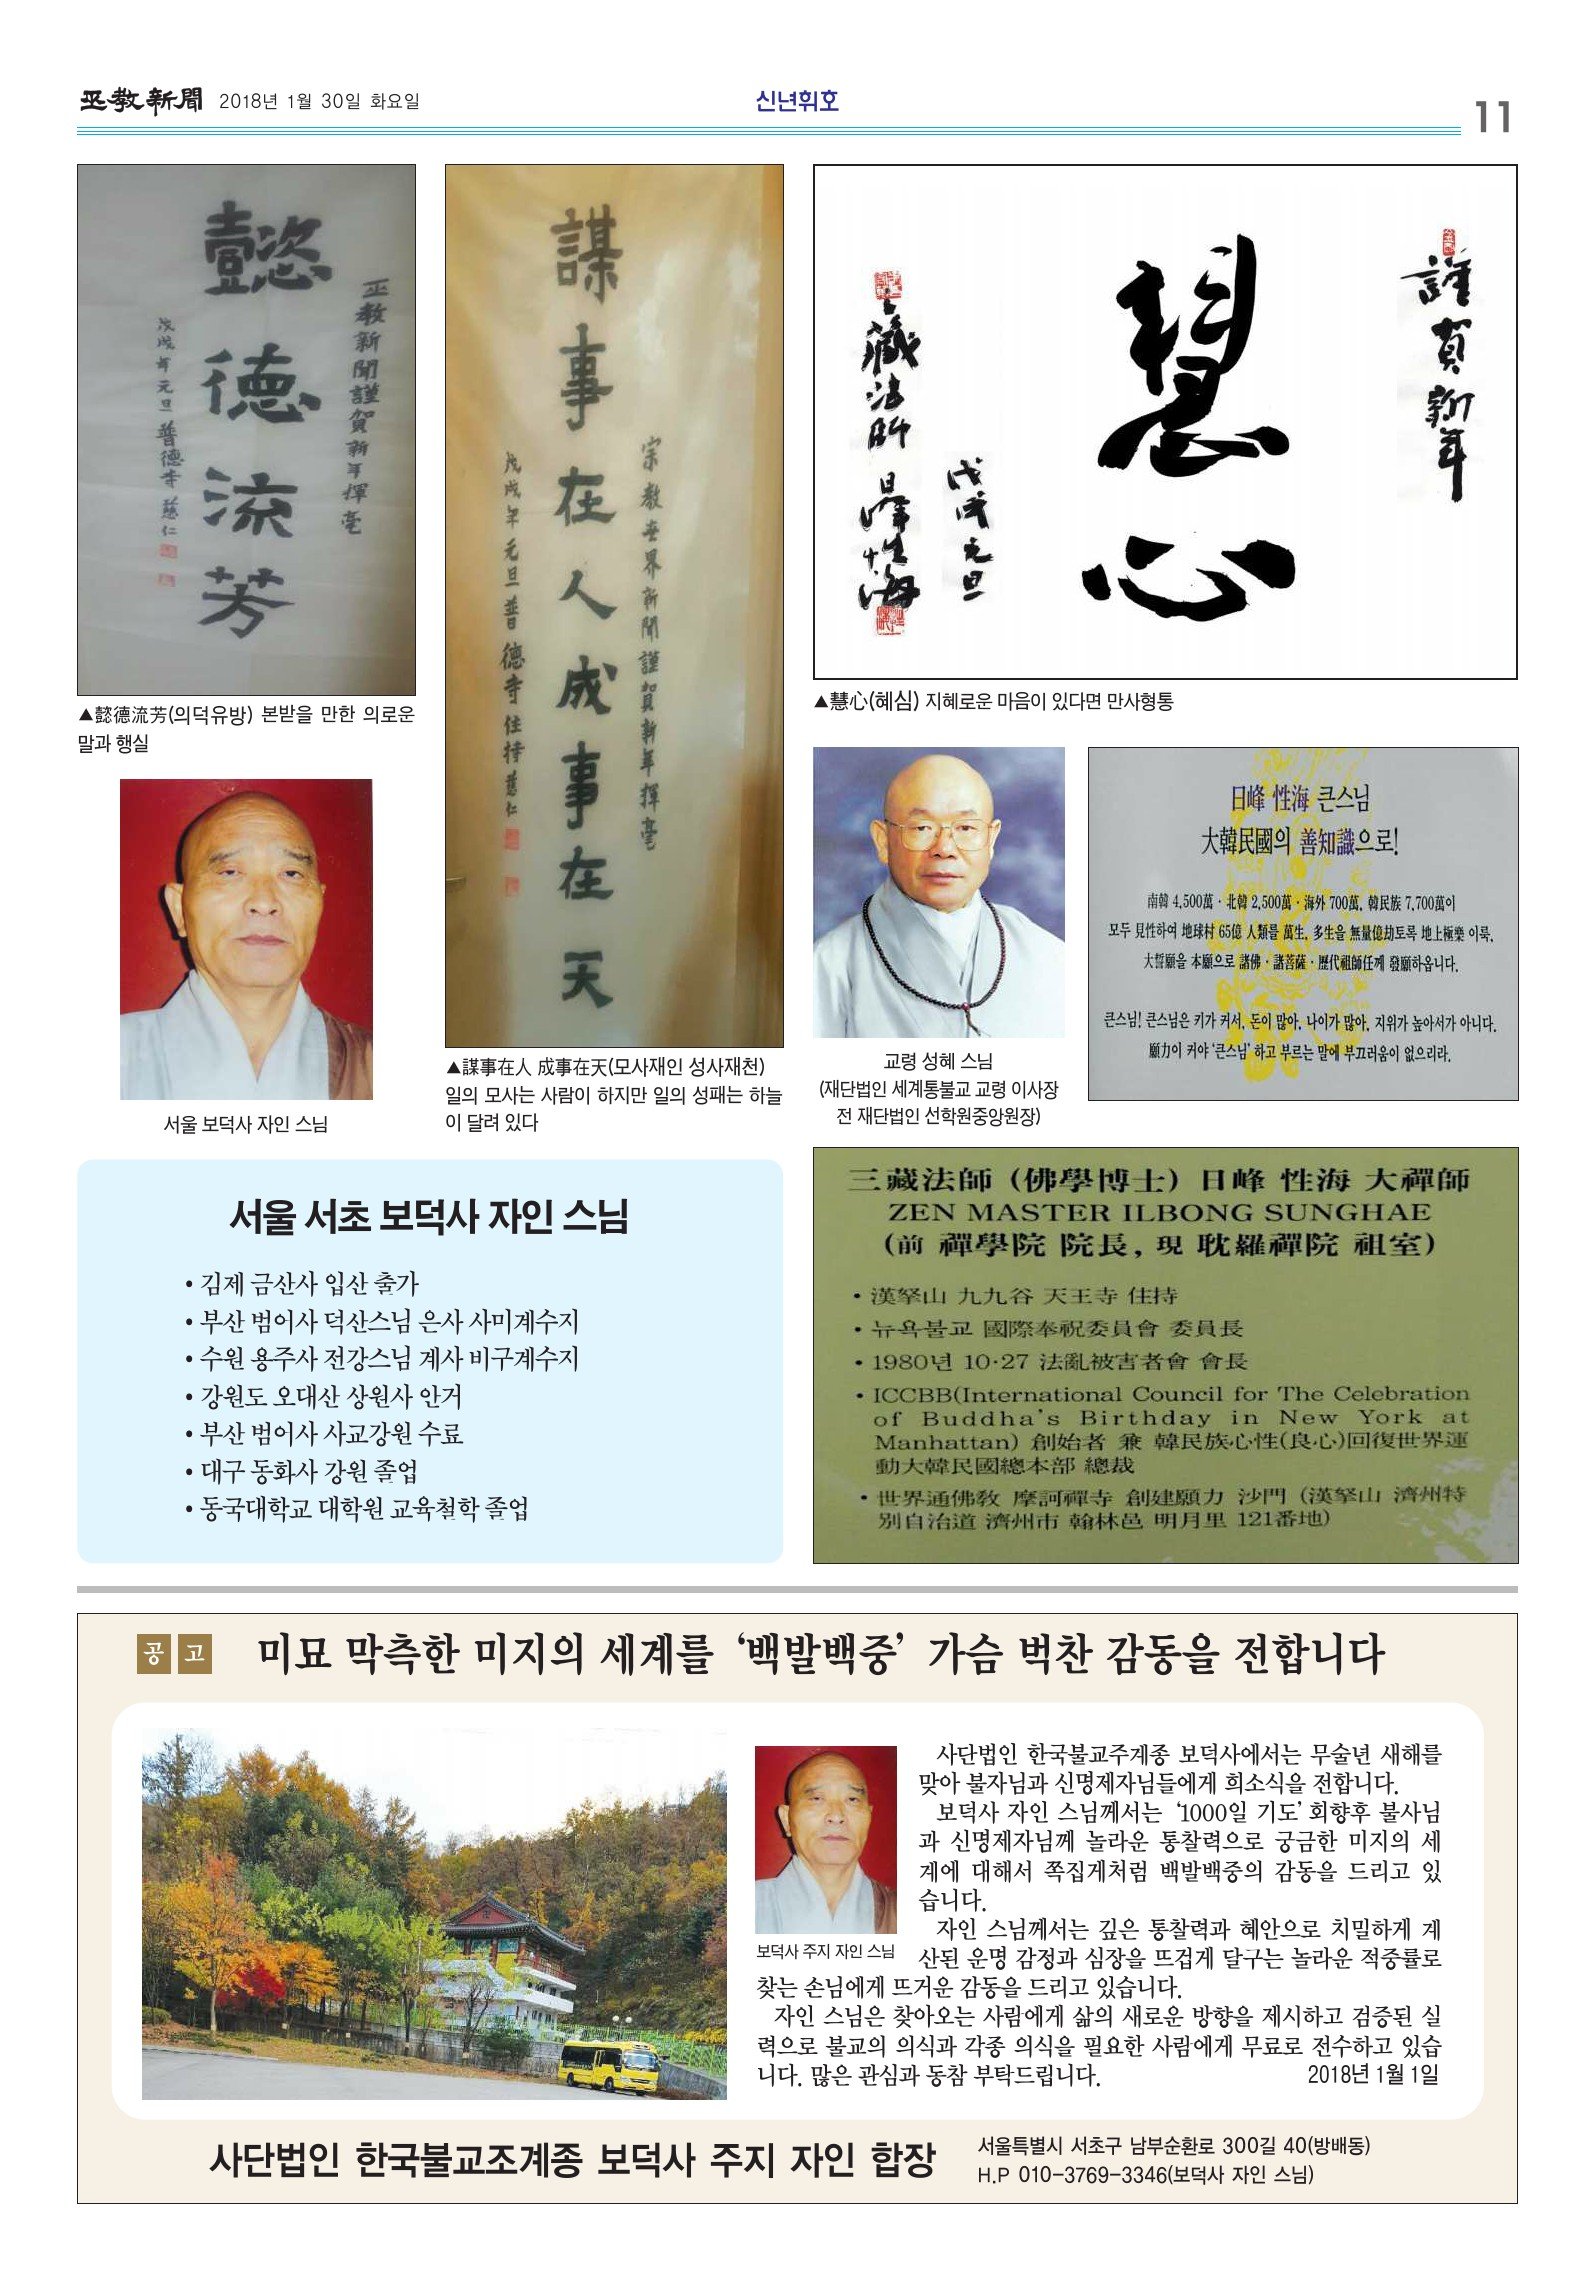 巫敎新聞 2018년 1월 30일 화요일
신년휘호
11
懿德流芳
巫教新聞謹賀新年揮毫
戊戌年元旦普德寺 慈仁
▲懿德流芳(의덕유방) 본받을 만한 의로운
말과 행실
서울 보덕사 자인 스님
謀事在人成事在天
宗教世界新聞謹賀新年揮毫
戊戌年元旦普德寺住持慈仁
▲謀事在人 成事在天(모사재인 성사재천)
일의 모사는 사람이 하지만 일의 성패는 하늘
이 달려 있다
謹賀新年
慧心
戊戌元旦
三藏法師 日峰性海
▲慧心(혜심) 지혜로운 마음이 있다면 만사형통
교령 성혜 스님
(재단법인 세계통불교 교령 이사장
전 재단법인 선학원중앙원장)
日峰 性海 큰스님
大韓民國의 善知識으로!
南韓 4,500萬 · 北韓 2,500萬 · 海外 700萬, 韓民族 7,700萬이
모두 見性하여 地球村 65億 人類를 萬生, 多生을 無量億劫토록 地上極樂 이룩,
大誓願을 本願으로 諸佛 · 諸菩薩 · 歷代祖師任께 發願하옵니다.
큰스님! 큰스님은 키가 커서, 돈이 많아, 나이가 많아, 지위가 높아서가 아니다.
願力이 커야 '큰스님' 하고 부르는 말에 부끄러움이 없으리라.
三藏法師 (佛學博士) 日峰 性海 大禪師
ZEN MASTER ILBONG SUNGHAE
(前 禪學院 院長, 現 耽羅禪院 祖室)
• 漢拏山 九九谷 天王寺 住持
• 뉴욕불교 國際奉祝委員會 委員長
• 1980년 10·27 法亂被害者會 會長
• ICCBB(International Council for The Celebration
of Buddha's Birthday in New York at
Manhattan) 創始者 兼 韓民族心性(良心)回復世界運
動大韓民國總本部 總裁
• 世界通佛敎 摩訶禪寺 創建願力 沙門 (漢拏山 濟州特
別自治道 濟州市 翰林邑 明月里 121番地)
서울 서초 보덕사 자인 스님
• 김제 금산사 입산 출가
• 부산 범어사 덕산스님 은사 사미계수지
• 수원 용주사 전강스님 계사 비구계수지
• 강원도 오대산 상원사 안거
• 부산 범어사 사교강원 수료
• 대구 동화사 강원 졸업
• 동국대학교 대학원 교육철학 졸업
공고 미묘 막측한 미지의 세계를 '백발백중' 가슴 벅찬 감동을 전합니다
보덕사 주지 자인 스님
사단법인 한국불교주계종 보덕사에서는 무술년 새해를
맞아 불자님과 신명제자님들에게 희소식을 전합니다.
보덕사 자인 스님께서는 '1000일 기도' 회향후 불사님
과 신명제자님께 놀라운 통찰력으로 궁금한 미지의 세
계에 대해서 쪽집게처럼 백발백중의 감동을 드리고 있
습니다.
자인 스님께서는 깊은 통찰력과 혜안으로 치밀하게 계
산된 운명 감정과 심장을 뜨겁게 달구는 놀라운 적중률로
찾는 손님에게 뜨거운 감동을 드리고 있습니다.
자인 스님은 찾아오는 사람에게 삶의 새로운 방향을 제시하고 검증된 실
력으로 불교의 의식과 각종 의식을 필요한 사람에게 무료로 전수하고 있습
니다. 많은 관심과 동참 부탁드립니다. 2018년 1월 1일
사단법인 한국불교조계종 보덕사 주지 자인 합장
서울특별시 서초구 남부순환로 300길 40(방배동)
H.P 010-3769-3346(보덕사 자인 스님)